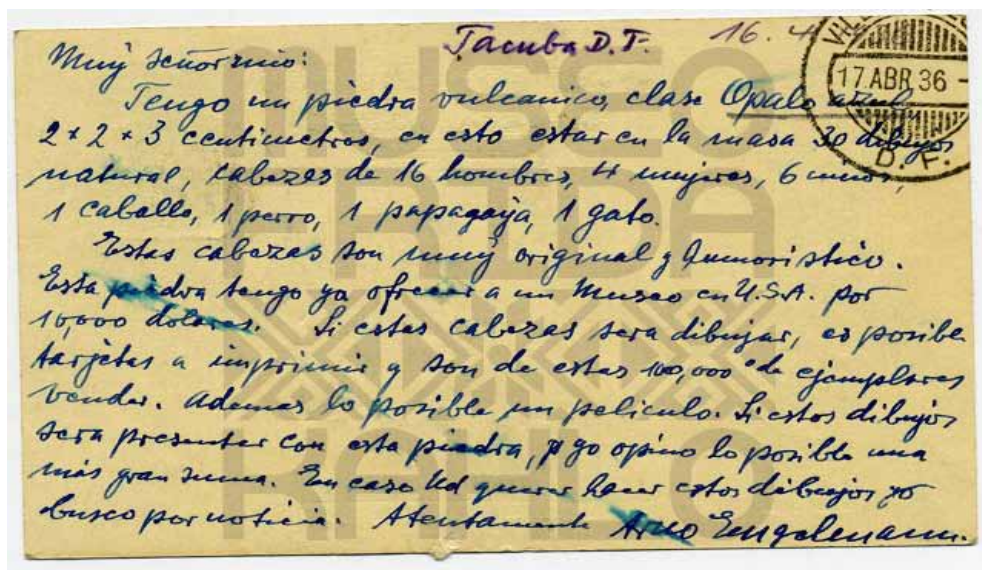 Tacuba D.F. 16. 4
Muy señor mio:
Tengo un piedra vulcanico, clase Opalo azul
2 x 2 x 3 centimetros, en esto estar en la masa 30 dibujos
natural, cabezas de 16 hombres, 4 mujeres, 6
1 caballo, 1 perro, 1 papagaya, 1 gato.
Estas cabezas son muy original y humoristico.
Esta piedra tengo ya ofrecer a un Museo en U.S.A. por
10,000 dolares. Si estas cabezas sera dibujar, es posible
tarjetas a imprimir y son de estas 100,000 de ejemplares
vender. Ademas lo posible un peliculo. Si estos dibujos
sera presentar con esta piedra, yo opino lo posible una
más gran suma. En caso Ud querer hacer estos dibujos yo
busco por noticia. Atentamente Arno Engelmann.
17 ABR 36
D. F.
MUSEO
FRIDA
KAHLO